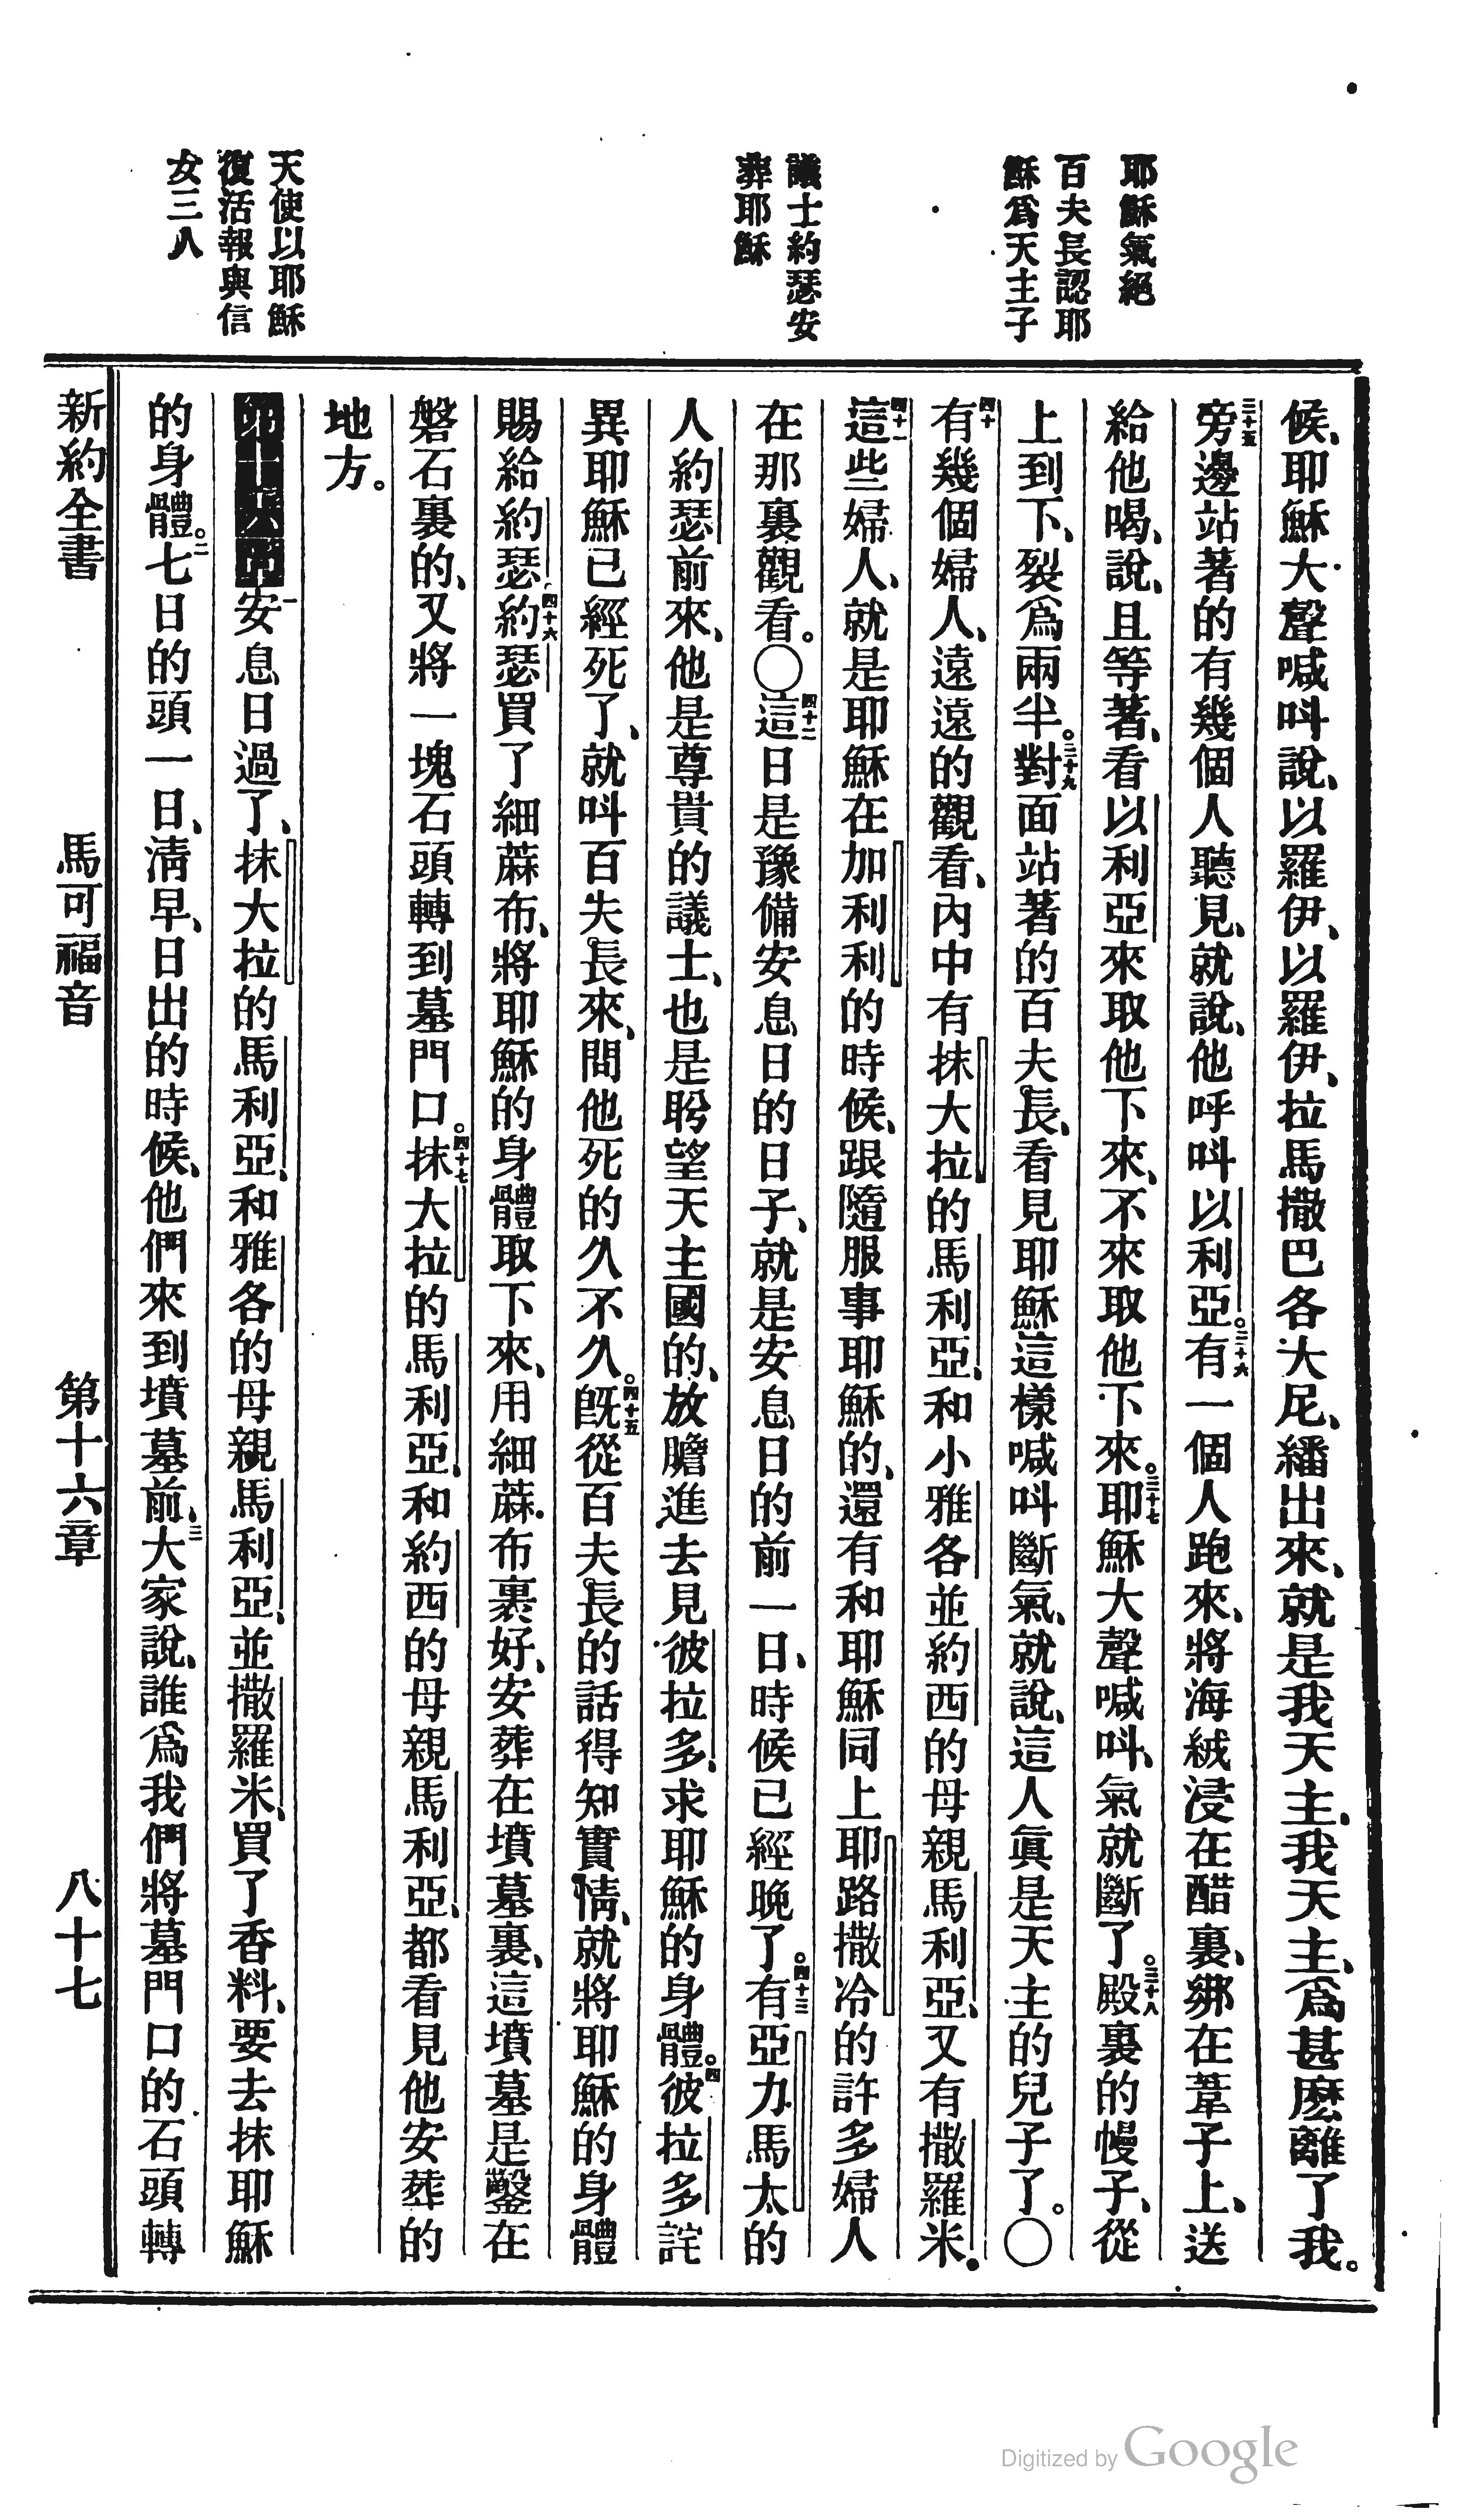 耶穌氣絕
百夫長認耶
穌爲天主子
議士約瑟安
葬耶穌
天使以耶穌
復活報與信
女三人
候、耶穌大聲喊呌說、以羅伊、以羅伊、拉馬撒巴各大尼、繙出來、就是我天主、我天主、爲甚麽離了我。
三十五旁邊站著的有幾個人聽見、就說、他呼呌以利亞。三十六有一個人跑來、將海絨浸在醋裏、綁在葦子上、送
給他喝、說、且等著、看以利亞來取他下來、不來取他下來。三十七耶穌大聲喊呌、氣就斷了。三十八殿裏的幔子、從
上到下、裂爲兩半。三十九對面站著的百夫長、看見耶穌這樣喊呌斷氣、就說、這人眞是天主的兒子了。〇
四十有幾個婦人、遠遠的觀看、內中有抹大拉的馬利亞、和小雅各並約西的母親馬利亞、又有撒羅米、
四十一這些婦人、就是耶穌在加利利的時候、跟隨服事耶穌的、還有和耶穌同上耶路撒冷的許多婦人
在那裏觀看。〇四十二這日是豫備安息日的日子、就是安息日的前一日、時候已經晚了。四十三有亞力馬太的
人約瑟前來、他是尊貴的議士、也是盼望天主國的、放膽進去見彼拉多、求耶穌的身體。四彼拉多詫
異耶穌已經死了、就呌百夫長來、問他死的久不久。四十五旣從百夫長的話得知實情、就將耶穌的身體
賜給約瑟。四十六約瑟買了細蔴布、將耶穌的身體取下來、用細蔴布裹好、安葬在墳墓裏、這墳墓是鑿在
磐石裏的、又將一塊石頭轉到墓門口。四十七抹大拉的馬利亞、和約西的母親馬利亞、都看見他安葬的
地方。
一安息日過了、抹大拉的馬利亞、和雅各的母親馬利亞、並撒羅米、買了香料、要去抹耶穌
的身體。二七日的頭一日、淸早、日出的時候、他們來到墳墓前、三大家說、誰爲我們將墓門口的石頭轉
新約全書　馬可福音　第十六章　八十七
Digitized by Google